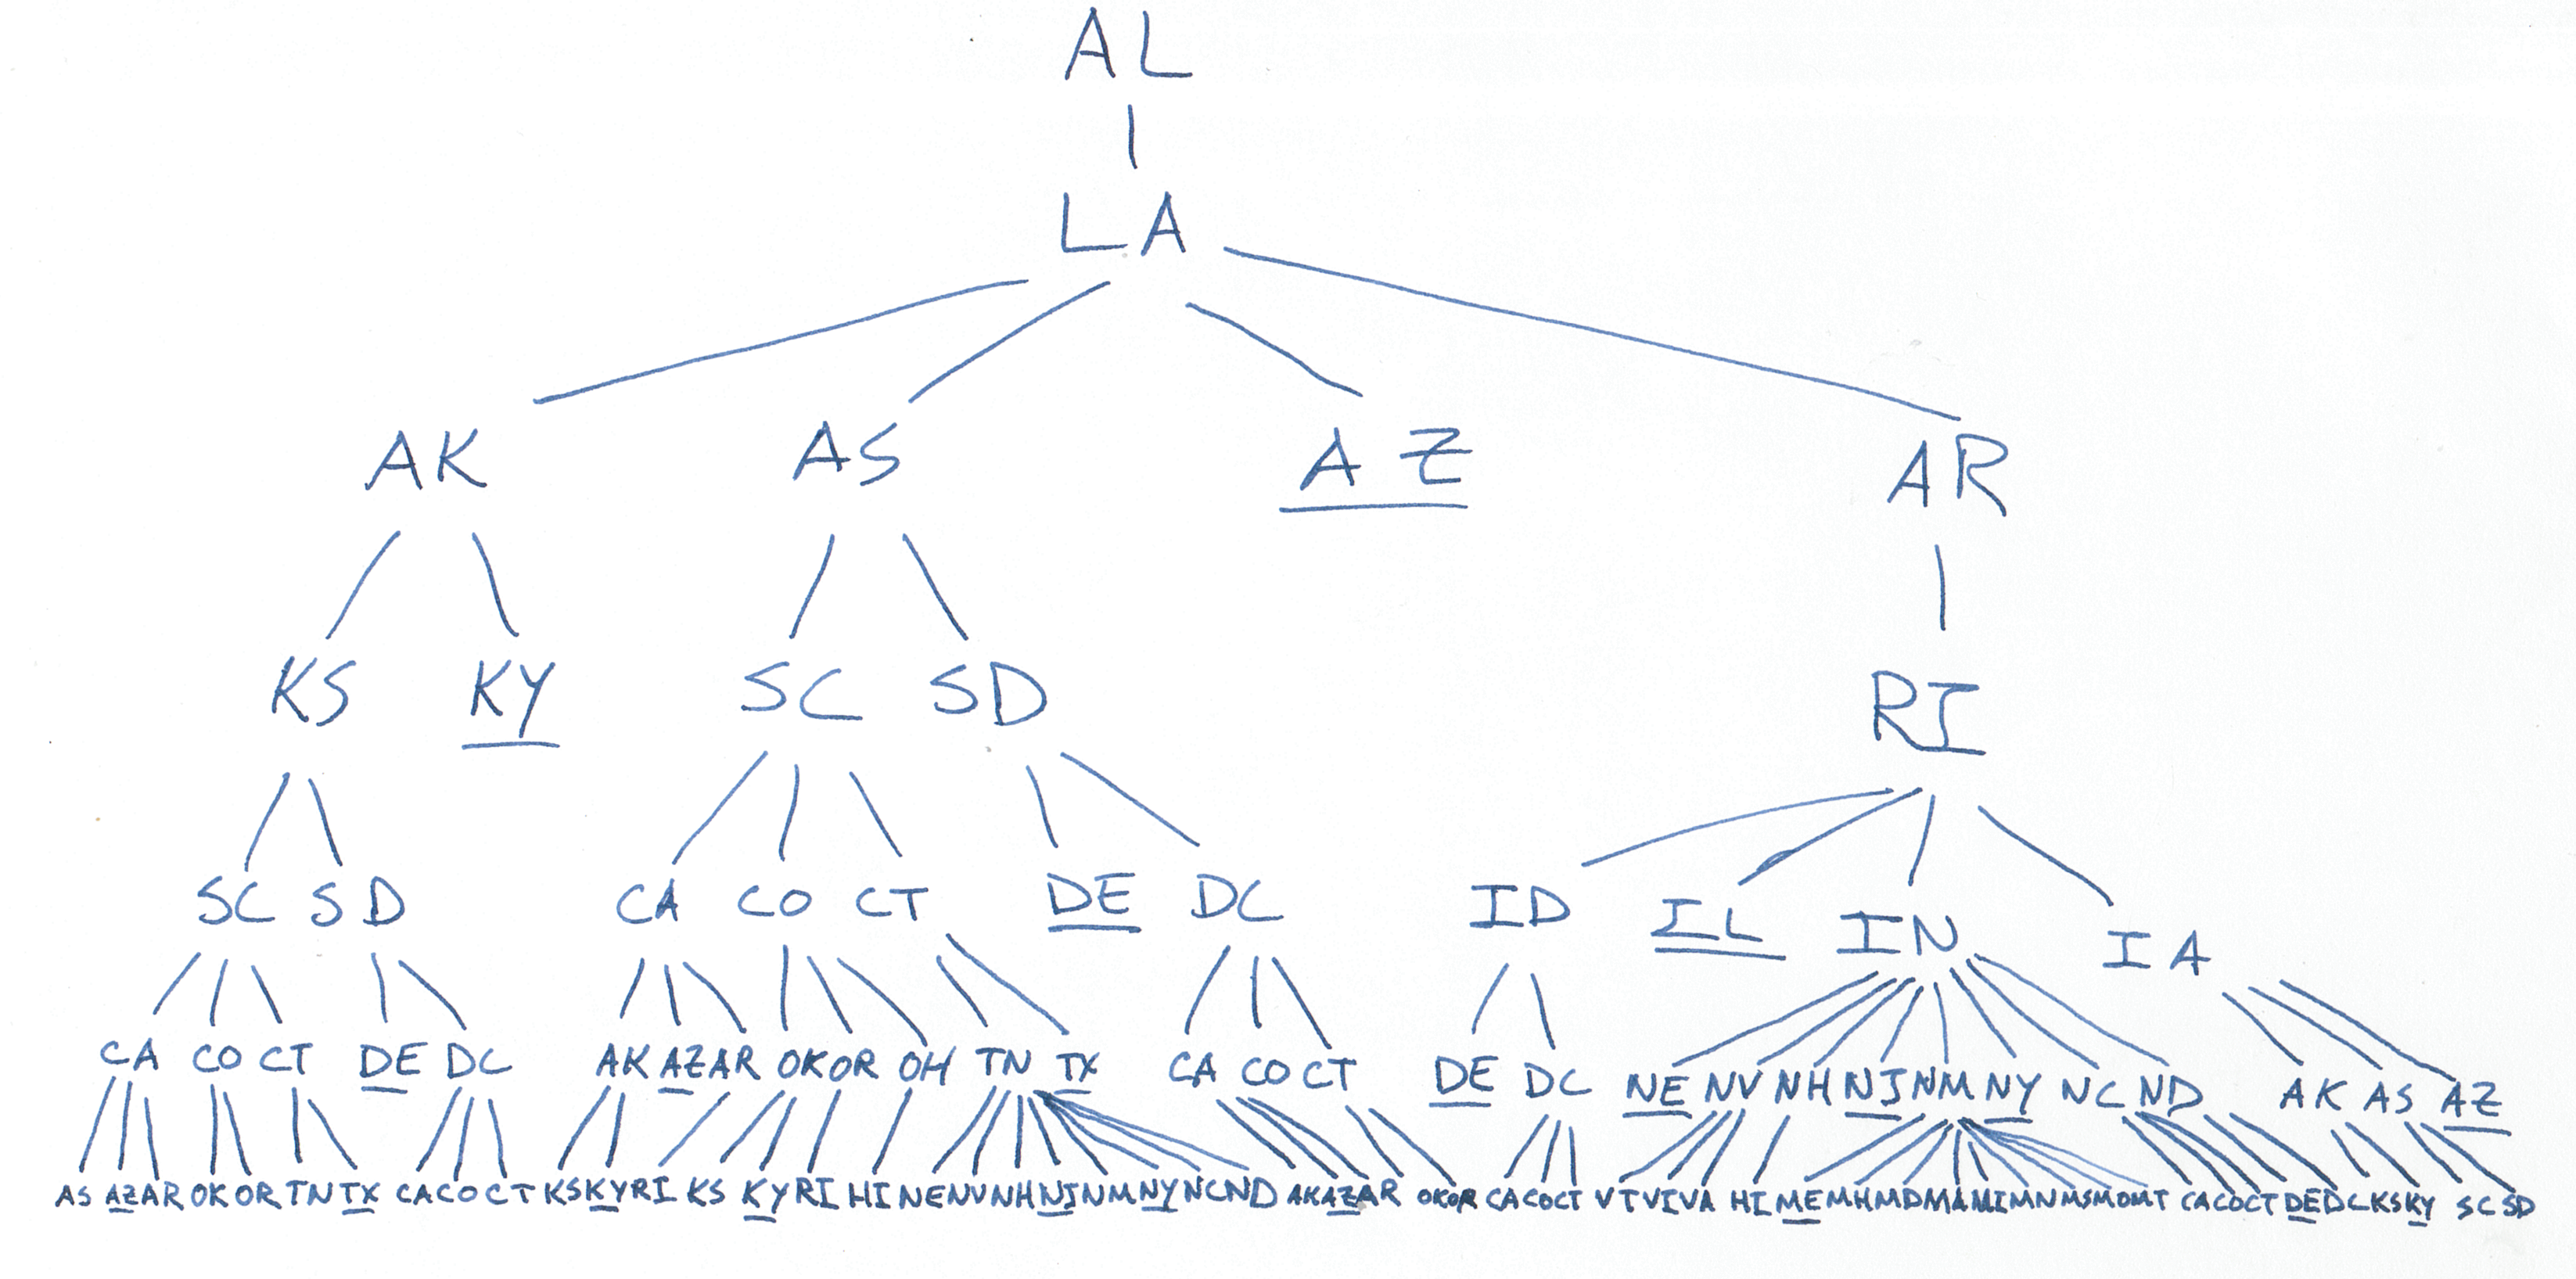 AL
LA
AK AS AZ AR
KS KY SC SD RI
SC SD CA CO CT DE DC ID IL IN IA
CA CO CT DE DC AK AZ AR OK OR OH TN TX CA CO CT DE DC NE NV NH NJ NM NY NC ND AK AS AZ
AS AZ AR OK OR TN TX CA CO CT KS KY RI KS KY RI HI NE NV NH NJ NM NY NC ND AK AZ AR OK OR CA CO CT VT VI VA HI ME MH MD MA MI MN MS MO MT CA CO CT DE DC KS KY SC SD